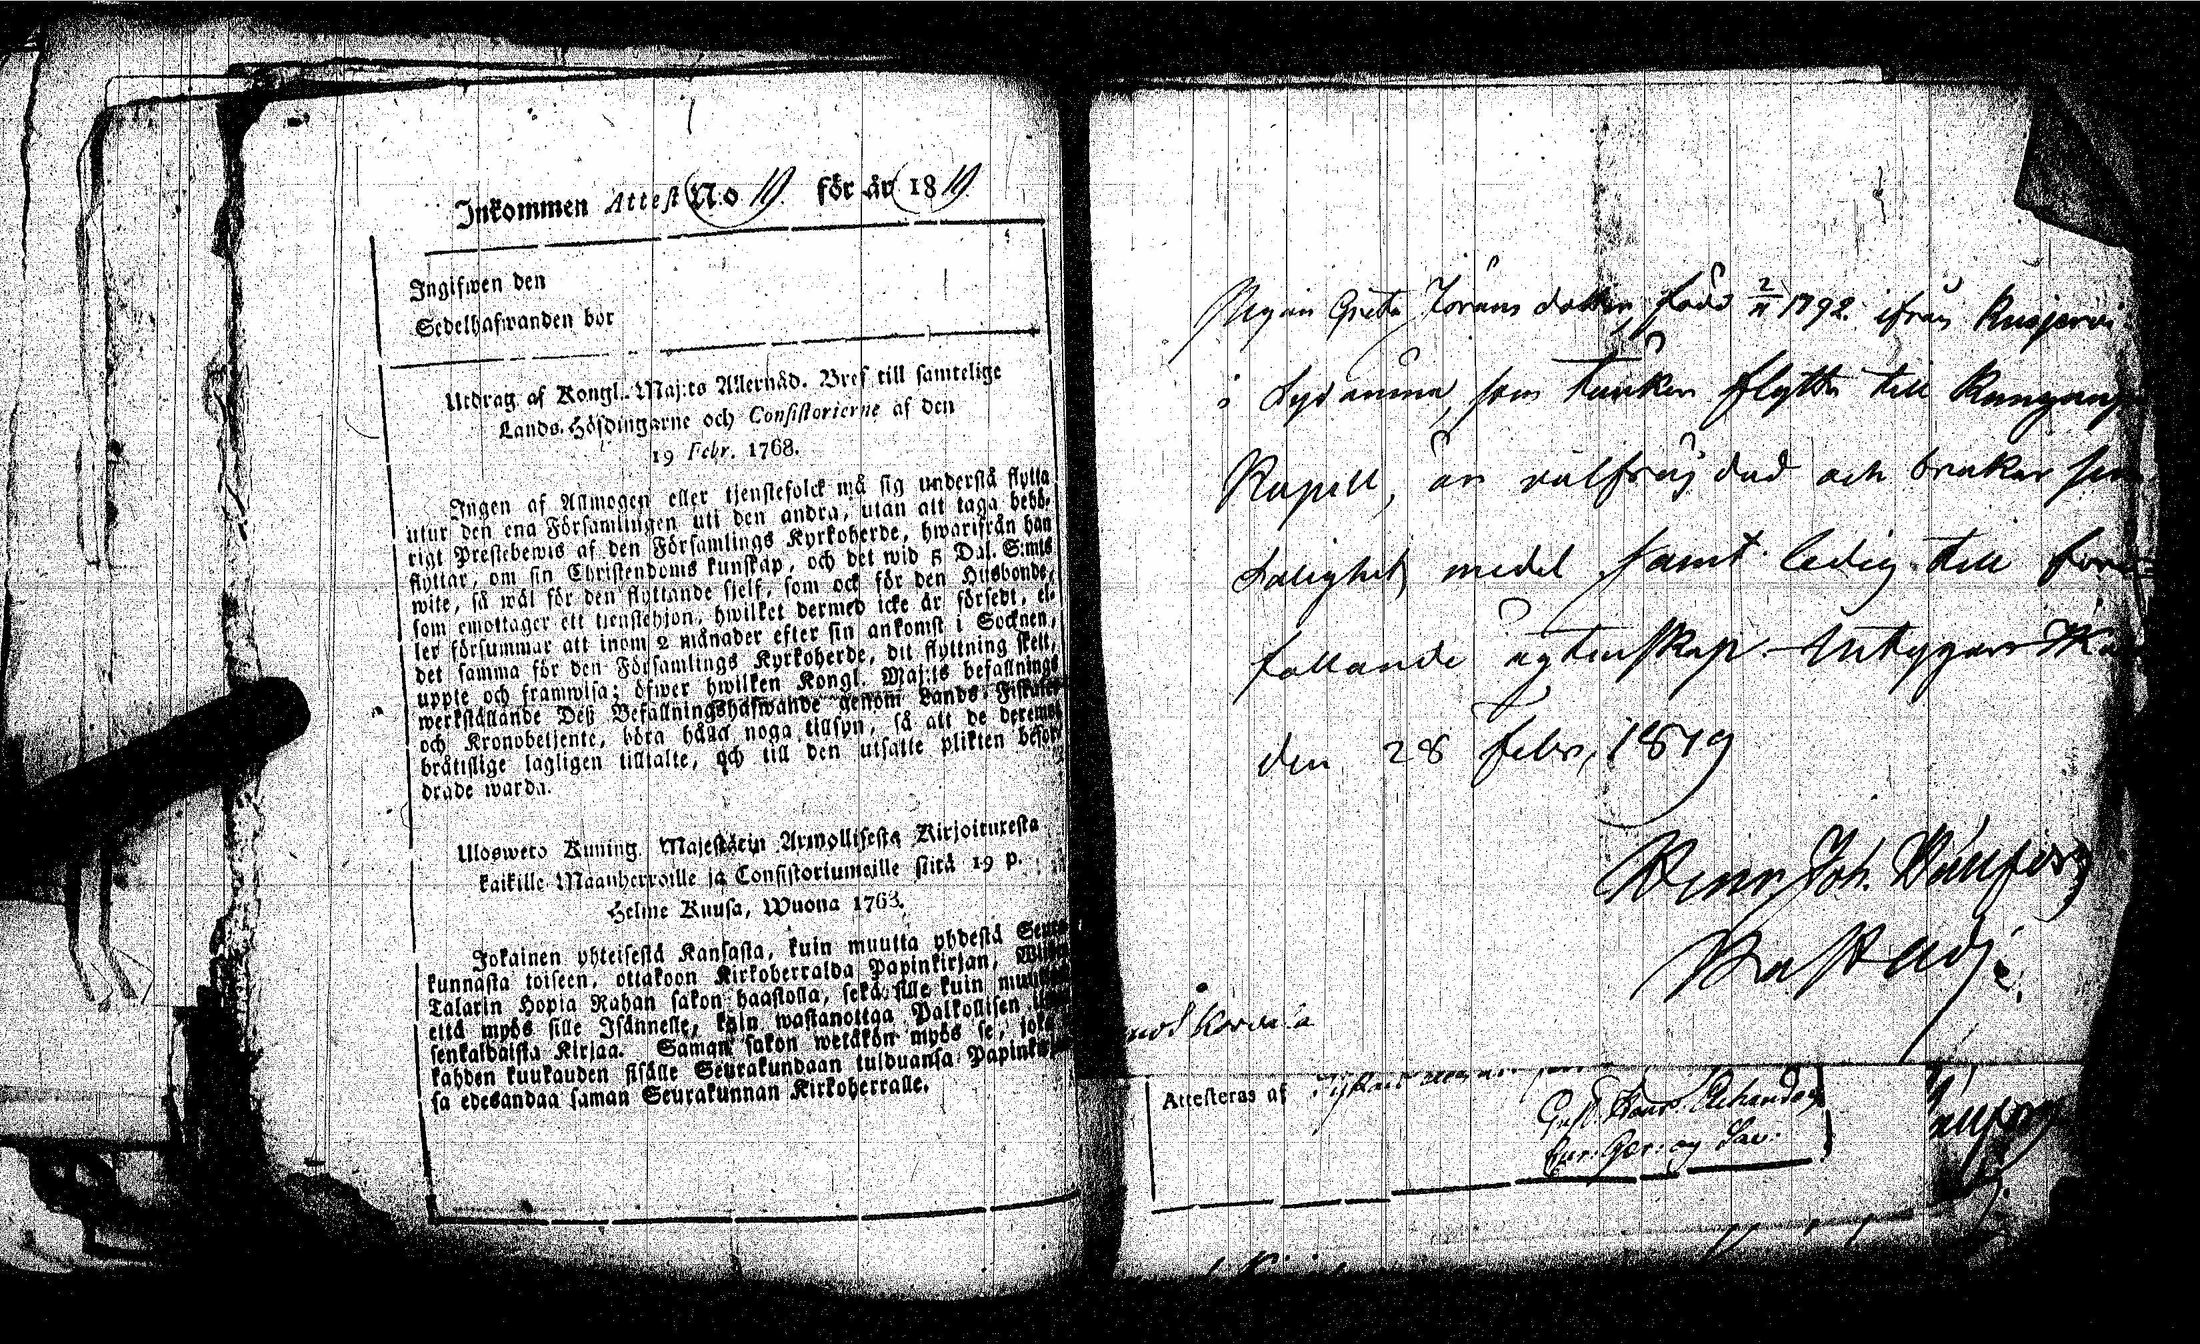 Inkommen Attest No 19. för år 1819
Ingifwen den
Sedelhafwanden bor
Utdrag af Kongl. Maj:ts Allernåd. Bref till samtelige
Lands-Höfdingarne och Consistorierne af den
19 Febr. 1768.
Ingen af Allmogen eller tjenstefolck må sig understå flytta
utur den ena Församlingen uti den andra, utan att taga behö-
rigt Prestebewis af den Församlings Kyrkoherde, hwarifrån han
flyttar, om sin Christendoms kunskap, och det wid 5 Dal. S:mts
wite, så wäl för den flyttande sjelf, som ock för den Husbonde,
som emottager ett tjenstehjon, hwilket dermed icke är försedt, el-
ler försummar att inom 2 månader efter sin ankomst i Socknen,
det samma för den Församlings Kyrkoherde, dit flyttning skett,
uppte och framwisa; öfwer hwilken Kongl. Maj:ts befallnings
werkställande Deß Befallningshafwande genom Lands-Fiskaler
och Kronobetjente, böra hålla noga tillsyn, så att de deremot
bråttslige lagligen tilltalte, och till den utsatte plikten beför-
drade warda.
Ulosweto Kuning. Majestätin Armollisesta Kirjoituxesta
kaikille Maanherroille ja Consistoriumeille siitä 19 p.
Helme Kuusa, Wuona 1768.
Jokainen yhteisestä Kansasta, kuin muutta yhdestä Seura
kunnasta toiseen, ottakoon Kirkoherralda Papinkirjan,
Talarin Hopia Rahan sakon haastolla, sekä sille kuin
että myös sille Isännelle, kuin wastanottaa Palkollisen
senkaldaista Kirjaa. Saman sakon wetäkön myös se, joka
kahden kuukauden sisälle Seurakundaan tulduansa Papinkir
sa edesandaa saman Seurakunnan Kirkoherralle.
Pigan Greta Jörans dotter, född 2/11 1792. ifrån
i som tänker flytta till
Kapell, är välfräjdad och brukar sin
Salighets medel samt ledig till före
fallande ägtenskap. Intygar
den 28 febr, 1819
Henr. Joh.
Attesteras af